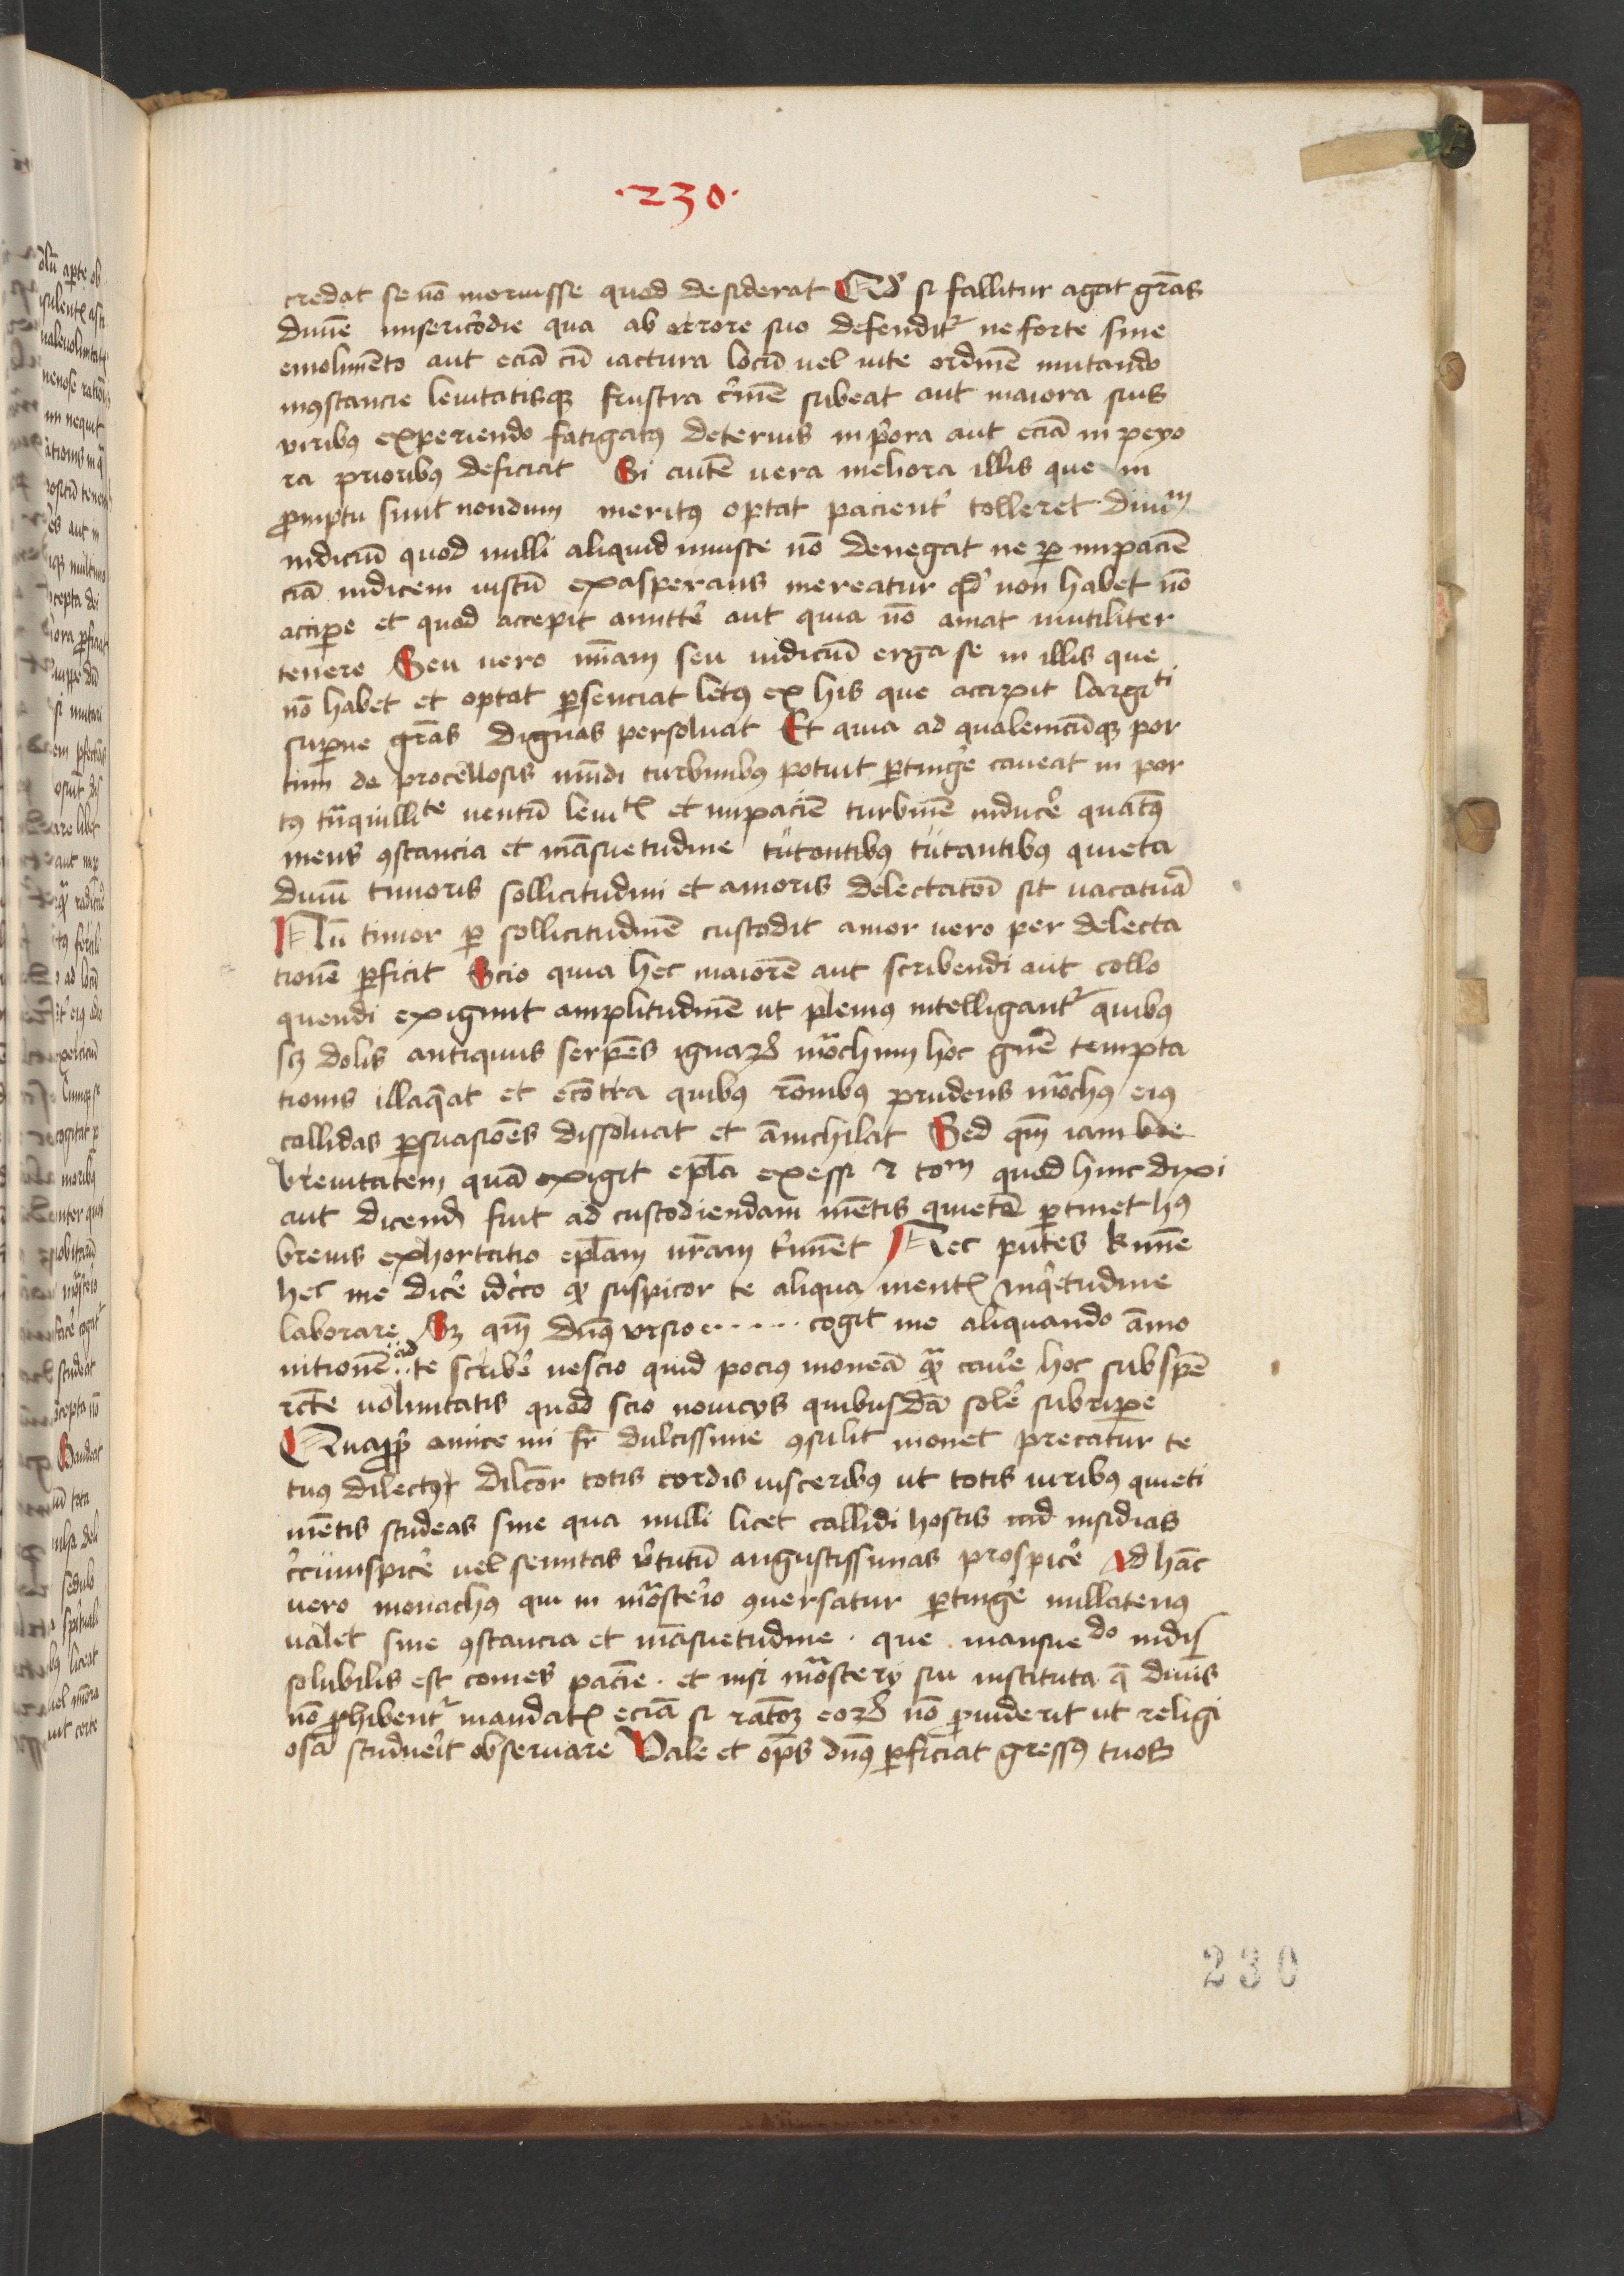 ·230·
credat se nō meruisse quod desiderat Qd' si fallitur agat gr̄as
diuine misericordie qua ab errore suo defendit' ne forte sine
emolumēto aut eciā cū iactura locū uel uite ordinē mutando
inꝯstancie leuitatisqꝫ frustra c'mē subeat aut maiora suis
viribꝰ experiendo fatigatꝰ deterius in p'ora aut eciā in peyo
ra prioribꝰ deficiat Si autē uera meliora illis que in
ꝓmptu sunt nondum meritꝰ optat pacient' tolleret diuinū
iudiciū quod nulli aliquid iniuste nō denegat ne ꝑ impaciē
ciā iudicem iustū exasperans mereatur qd' non habet nō
accipe et quod accepit amittē aut quia nō amat inutiliter
tenere Seu uero miam seu iudiciū erga se in illis que
nō habet et optat ꝑsenciat letꝰ ex his que accipit largiti
superne gr̄as dignas persoluat Et quia ad qualemcūqꝫ por
tum de procellosis mūdi turbinibꝰ potuit ꝑtingē caueat in por
tꝰ tnꝗuillite uentū leuitꝭ et impaciē turbinē inducē quatꝰ
mens ꝯstancia et māsuetudine quieta
diuini timoris sollicitudini et amoris delectatōi sit uacatura
Nā timor ꝑ sollicitudinē custodit amor uero per delecta
tionē ꝑficit Scio quia hec maiorē aut scribendi aut collo
quendi exigunt amplitudinē ut plenius intelligant' quibꝰ
sꝫ dolis antiquus serpēs ignarū mōchum hoc gn̄e tempta
tionis illaq̄at et ecōtra quibꝰ rōnibꝰ prudens mōchꝰ eiꝰ
callidas ꝑsuasiōes dissoluat et ānichilat Sed qm̄ iam bre
breuitatem quā exigit epl̄a excessi ⁊ tom quod hinc dixi
aut dicend' fuit ad custodiendam mētis quietē ꝑtinet hꝰ
breuis exhortatio epl̄am nr̄am t'minet Nec putes kīme
hec me dicē idcco ꝙ suspicor te aliqua mentꝭ inq'etudine
laborare Sꝫ qm̄ dnꝰ vrsio...... cogit me aliquando āmo
nitionē ad te scribē nescio quid pociꝰ moneā q̄ cauē hoc sub spē
rcte uoluntatis quod scio nouicijs quibusdā solē subripe
Quaꝓp̄ amice mi fr̄ dulcissime ꝯsulit monet precatur te
tuꝰ dilectꝰ dilcōr totis cordis uisceribꝰ ut totis uiribꝰ quieti
mētis studeas sine qua nulli licet callidi hostis insidias
c'cūspicē uel semitas v'tutū angustissimas prospicē Ad hāc
uero monachꝰ qui in mōsterio ꝯuersatur ꝑtingē nullatenꝰ
ualet sine ꝯstancia et māsuetudine · que mansuedo indis
solubilis est comes paciē · et nisi mōsterij sui instituta q̄ diuis
nō ꝓhibent' mandatꝭ eciā si ratōꝫ eorū nō ꝑuiderit ut religi
osa studuerit obseruare Vale et oꝑs dnꝰ ꝑficiat gressꝰ tuos
230